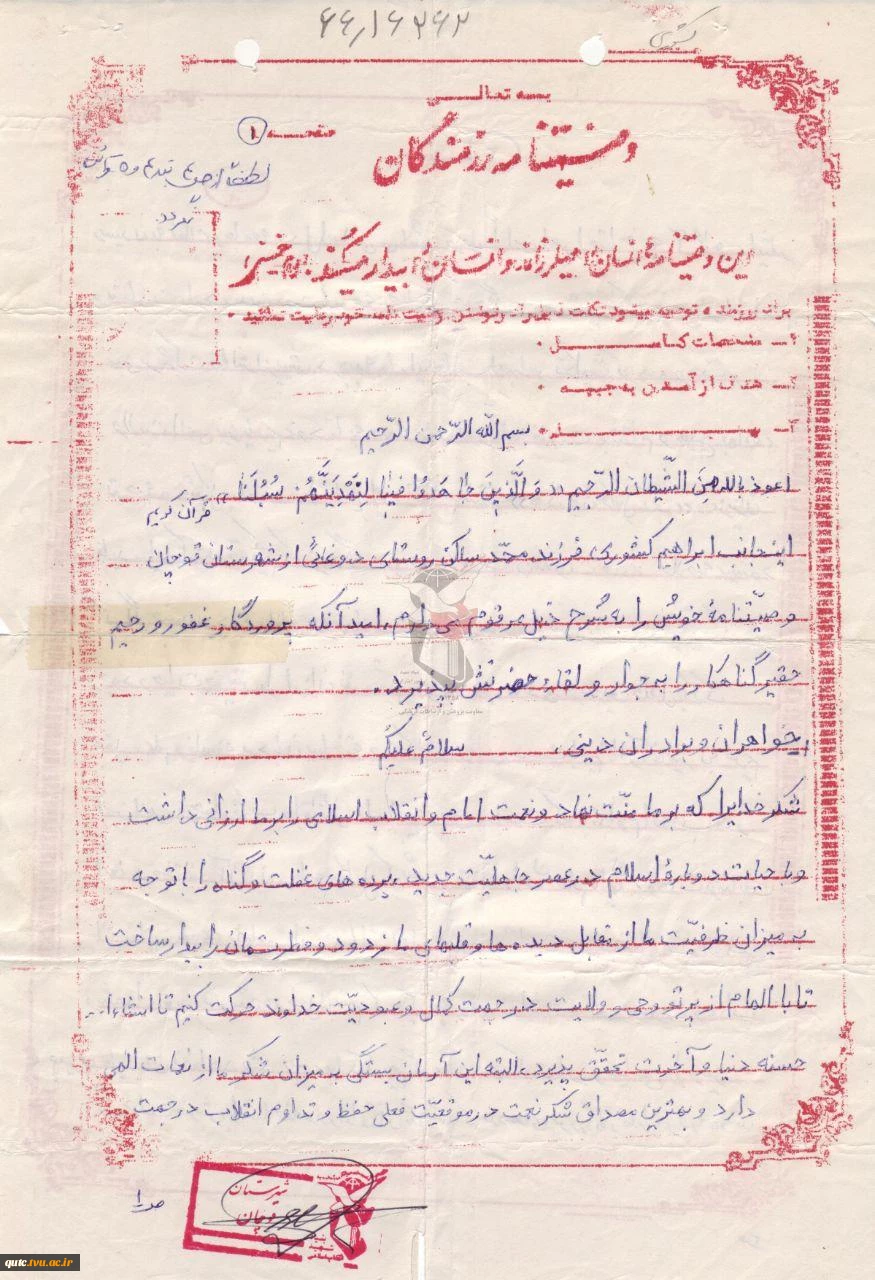 ۶۶٫۱۶۲۶۲
کشوری
بسمه تعالی
صفحه ۱
وصیتنامه رزمندگان
لطفا از
نگردد
این وصیتنامه‌ها انسان را میلرزاند و انسان را بیدار میکند. امام خمینی
برادر رزمنده توصیه میشود نکات ذیل را در نوشتن وصیت نامه خود رعایت نمائید.
۱ـ مشخصات کامل.
۲ـ هدف از آمدن به جبهه.
۳ـ پیام.
بسم الله الرّحمن الرّحیم
اعوذ بالله مِنَ الشّیطان الرّجیم «وَ الَّذینَ جاهَدوُا فینا لِنَهْدِیَنَّهُمْ سُبُلَنا» قرآن کریم
اینجانب ابراهیم کشوری، فرزند محمّد ساکن روستای دوغائی از شهرستان قوچان
وصیّتنامهٔ خویش را به شرح ذیل مرقوم می دارم، امید آنکه پروردگار غفور و رحیم
حقیر گناهکار را به جوار و لقاء حضرتش بپذیرد.
معاونت پژوهش و ارتباطات فرهنگی
خواهران و برادران دینی، سلامٌ علیکُم
شکر خدایرا که بر ما منّت نهاد و نعمت امام و انقلاب اسلامی را بر ما ارزانی داشت
و با حیات دوبارهٔ اسلام در عصر جاهلیّت جدید، پرده های غفلت و گناه را با توجه
به میزان ظرفیّت ما از مقابل دیده ها و قلبهای ما زدود و فطرتمان را بیدار ساخت
تا با الهام از پرتو وحی و ولایت در جهت کمال و عبودیّت خداوند حرکت کنیم تا انشاءا...
حسنه دنیا و آخرت تحقّق پذیرد، البته این آرمان بستگی به میزان شکر ما از نعمات الهی
دارد و بهترین مصداق شکر نعمت در موقعیّت فعلی حفظ و تداوم انقلاب در جهت
شهرستان
قوچان
بنیاد
شهید
انقلاب اسلامی
صـ۱
qutc.tvu.ac.ir